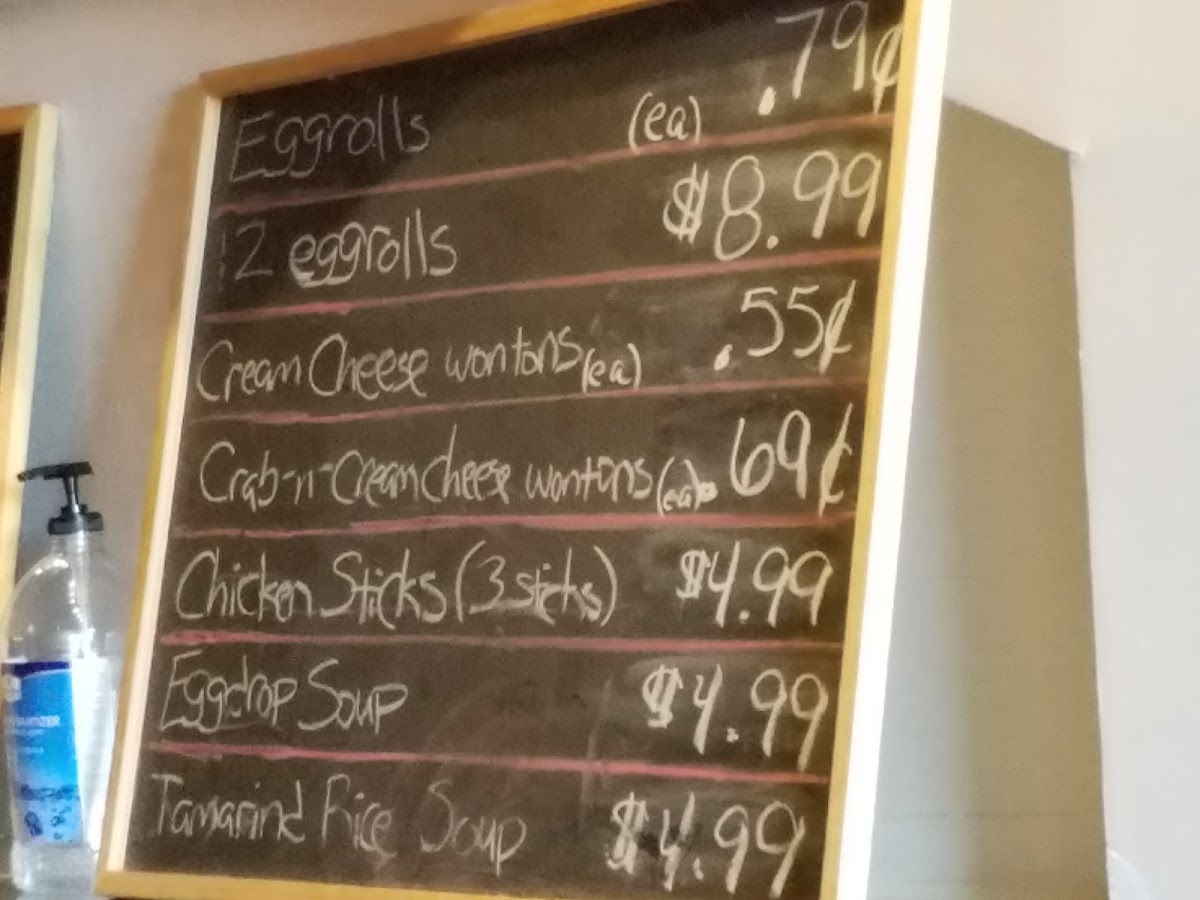 Eggrolls (ea) .79¢
12 eggrolls $8.99
Cream Cheese wontons (ea) .55¢
Crab-n-Cream cheese wontons (ea) .69¢
Chicken Sticks (3 sticks) $4.99
Eggdrop Soup $4.99
Tamarind Rice Soup $4.99